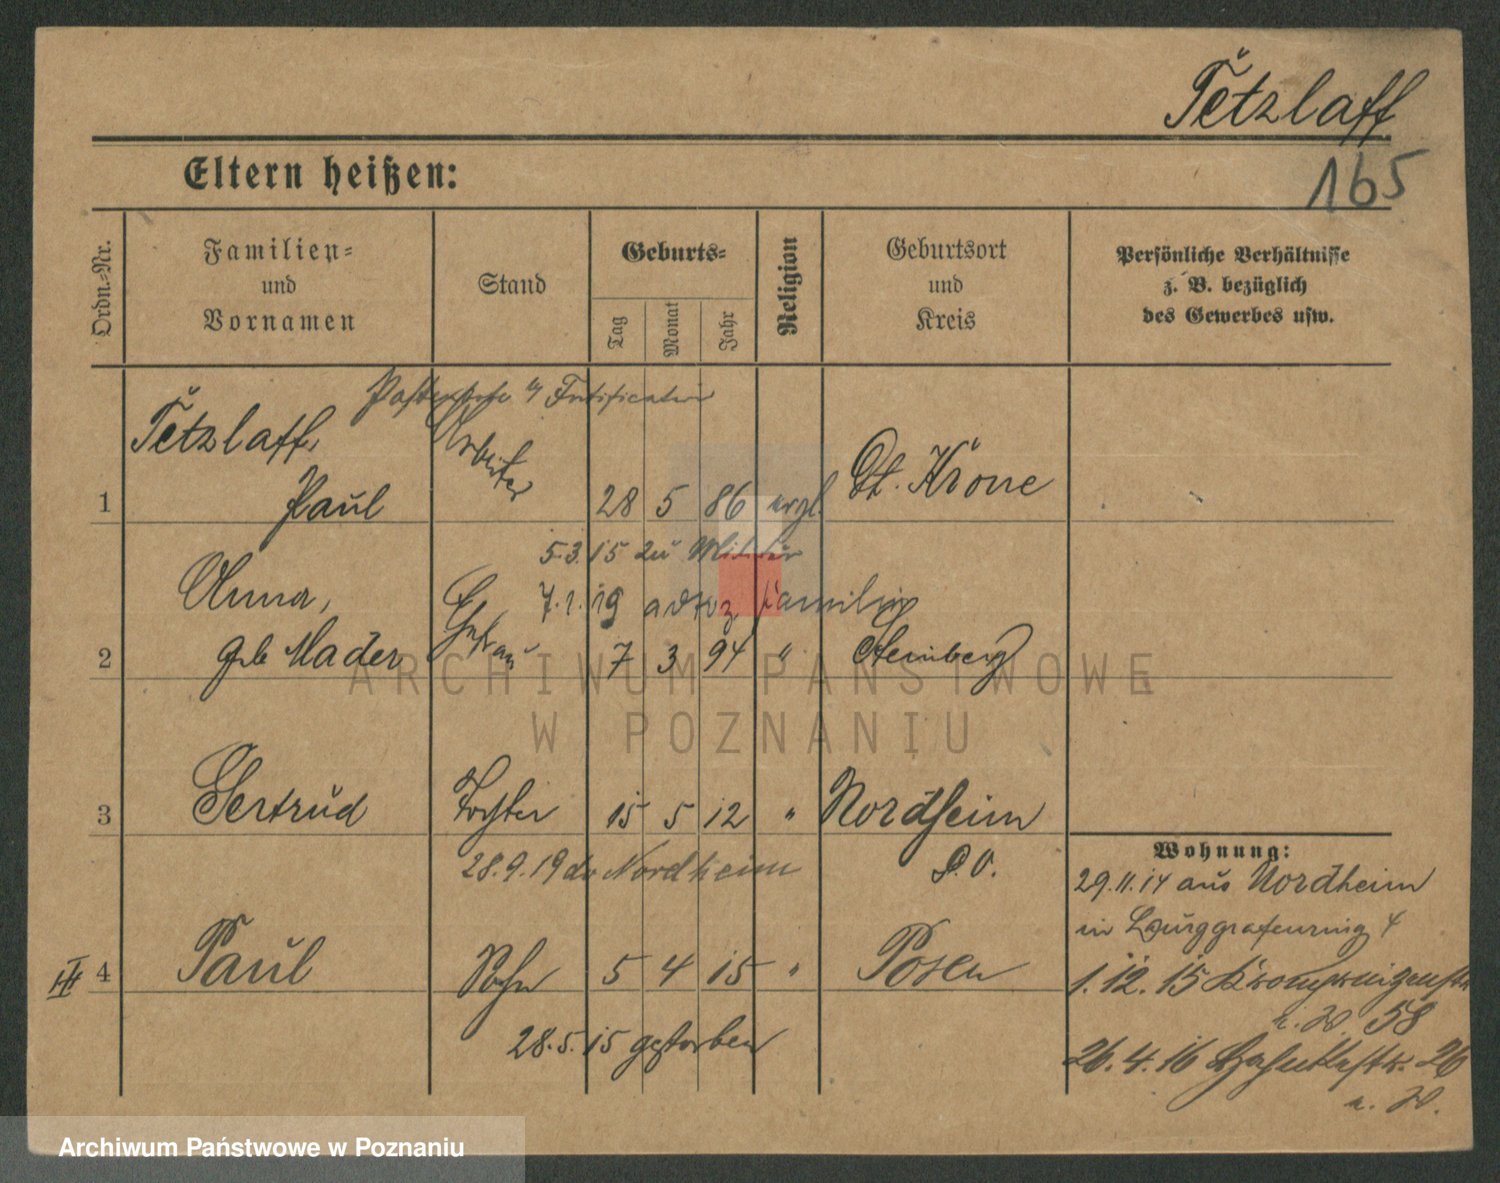 Tetzlaff
165
Eltern heißen:
Ordn.-Nr.
Familien-
und
Vornamen
Stand
Geburts-
Tag
Monat
Jahr
Religion
Geburtsort
und
Kreis
Persönliche Verhältnisse
z. B. bezüglich
des Gewerbes usw.
Tetzlaff,
Arbeiter
1 Paul 28 5 86 Dt. Krone
5.3.15 zu Militär
Anna,
7.1.19 Familie
2 geb Mader Ehefrau 7 3 94 " Sternberg
3 Gertrud Tochter 15 5 12 " Nordheim
28.9.19 Nordheim
P.O.
Wohnung:
29.11.14 aus Nordheim
in Burggrafenring 4
4 Paul Sohn 5 4 15 " Posen
III
1.12.15 Kronprinzenstr
58
28.5.15 gestorben
26.4.16 26
ARCHIWUM PAŃSTWOWE
W POZNANIU
Archiwum Państwowe w Poznaniu